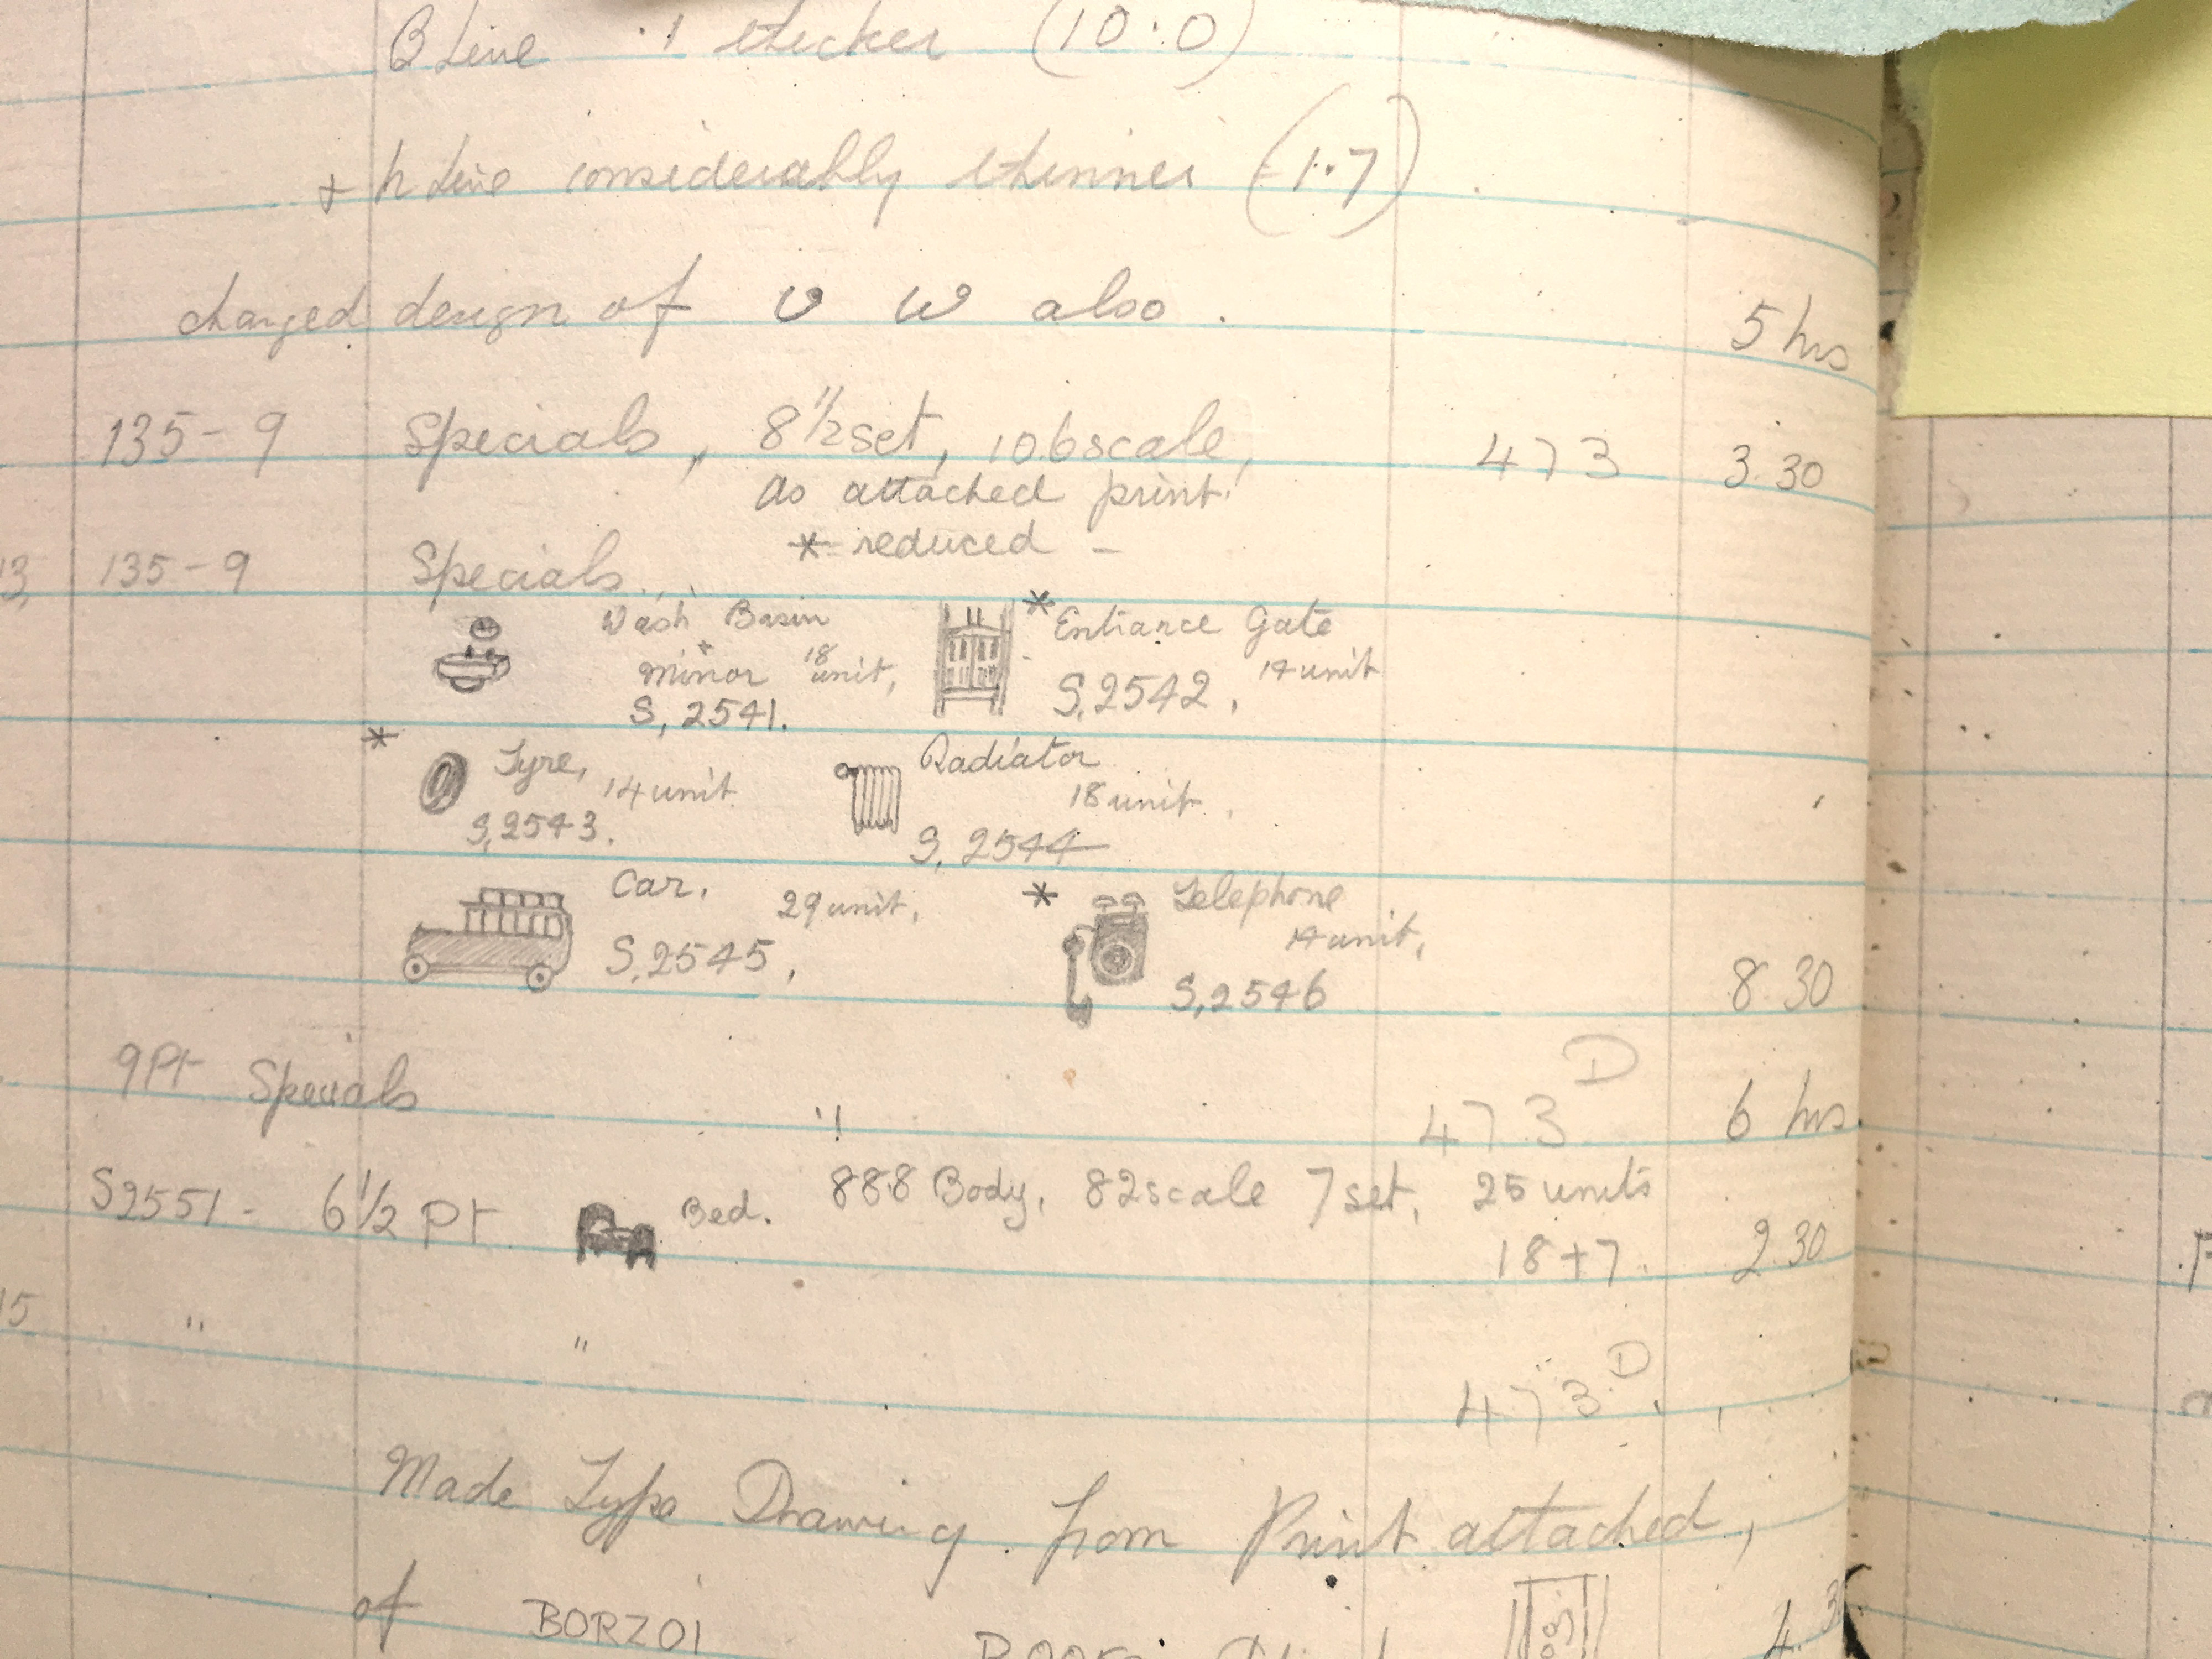 B Line .1 thicker (10.0)
+ h Line considerably thinner (-1.7)
changed design of v w also. 5 hrs
135-9 Specials, 8 1/2 set, 10.6 scale, 473 3.30
As attached print.
* reduced -
13, 135-9 Specials.
Wash Basin * Entrance Gate
minor 18 unit, 14 unit
S, 2541. S, 2542,
* Tyre, 14 unit Radiator 18 unit,
S, 2543. S, 2544
Car. 29 unit, * Telephone 14 unit,
S, 2545, S, 2546 8.30
9Pt Specials " 473 D 6 hrs
S2551- 6 1/2 Pt Bed. 888 Body, 82 scale 7 set, 25 units
18+7. 2.30
15 " "
473 D.
Made Type Drawing from Print attached,
of BORZOI